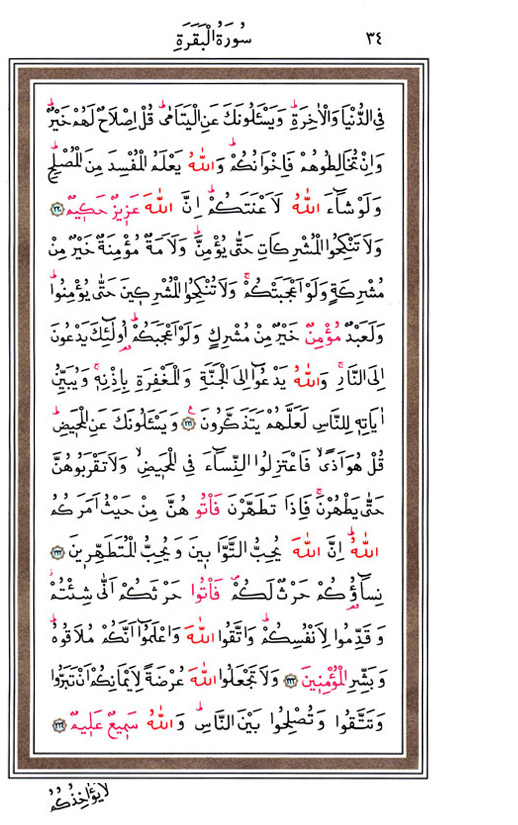 ٣٤ سُورَةُ الْبَقَرَةِ
فِي الدُّنْيَا وَالْاٰخِرَةِۜ وَيَسْـَٔلُونَكَ عَنِ الْيَتَامٰىۜ قُلْ اِصْلَاحٌ لَهُمْ خَيْرٌۜ
وَاِنْ تُخَالِطُوهُمْ فَاِخْوَانُكُمْۜ وَاللّٰهُ يَعْلَمُ الْمُفْسِدَ مِنَ الْمُصْلِحِۜ
وَلَوْ شَٓاءَ اللّٰهُ لَاَعْنَتَكُمْۜ اِنَّ اللّٰهَ عَزِيزٌ حَكِيمٌ ﴿٢٢٠﴾
وَلَا تَنْكِحُوا الْمُشْرِكَاتِ حَتّٰى يُؤْمِنَّۜ وَلَاَمَةٌ مُؤْمِنَةٌ خَيْرٌ مِنْ
مُشْرِكَةٍ وَلَوْ اَعْجَبَتْكُمْۚ وَلَا تُنْكِحُوا الْمُشْرِكِينَ حَتّٰى يُؤْمِنُواۜ
وَلَعَبْدٌ مُؤْمِنٌ خَيْرٌ مِنْ مُشْرِكٍ وَلَوْ اَعْجَبَكُمْۜ اُو۬لٰٓئِكَ يَدْعُونَ
اِلَى النَّارِۚ وَاللّٰهُ يَدْعُٓوا اِلَى الْجَنَّةِ وَالْمَغْفِرَةِ بِاِذْنِهٖۚ وَيُبَيِّنُ
اٰيَاتِهٖ لِلنَّاسِ لَعَلَّهُمْ يَتَذَكَّرُونَ۟ ﴿٢٢١﴾ وَيَسْـَٔلُونَكَ عَنِ الْمَحِيضِۜ
قُلْ هُوَ اَذًىۙ فَاعْتَزِلُوا النِّسَٓاءَ فِي الْمَحِيضِۙ وَلَا تَقْرَبُوهُنَّ
حَتّٰى يَطْهُرْنَۚ فَاِذَا تَطَهَّرْنَ فَأْتُوهُنَّ مِنْ حَيْثُ اَمَرَكُمُ
اللّٰهُۜ اِنَّ اللّٰهَ يُحِبُّ التَّوَّابِينَ وَيُحِبُّ الْمُتَطَهِّرِينَ ﴿٢٢٢﴾
نِسَٓاؤُ۬كُمْ حَرْثٌ لَكُمْۖ فَأْتُوا حَرْثَكُمْ اَنّٰى شِئْتُمْۘ
وَقَدِّمُوا لِاَنْفُسِكُمْۜ وَاتَّقُوا اللّٰهَ وَاعْلَمُٓوا اَنَّكُمْ مُلَاقُوهُۜ
وَبَشِّرِ الْمُؤْمِنِينَ ﴿٢٢٣﴾ وَلَا تَجْعَلُوا اللّٰهَ عُرْضَةً لِاَيْمَانِكُمْ اَنْ تَبَرُّوا
وَتَتَّقُوا وَتُصْلِحُوا بَيْنَ النَّاسِۜ وَاللّٰهُ سَمِيعٌ عَلِيمٌ ﴿٢٢٤﴾
لَا يُؤَاخِذُكُمُ